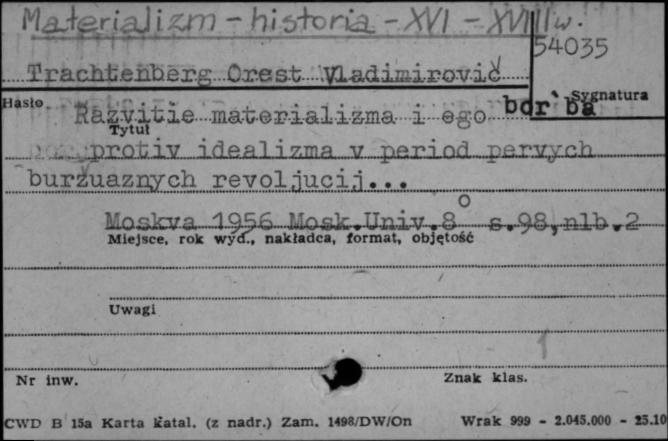 Materializm - historia - XVI - XVIII w.
54035
Trachtenberg Orest Vladimirovič
Hasło
Sygnatura
Razvitie materializma i ego bor'ba
Tytuł
protiv idealizma v period pervych
buržuaznych revoljucij...
Moskva 1956 Mosk.Univ.8° s.98,nlb.2
Miejsce, rok wyd., nakładca, format, objętość
Uwagi
1
Nr inw.
Znak klas.
CWD B 15a Karta katal. (z nadr.) Zam. 1498/DW/On Wrak 999 - 2.045.000 - 25.10